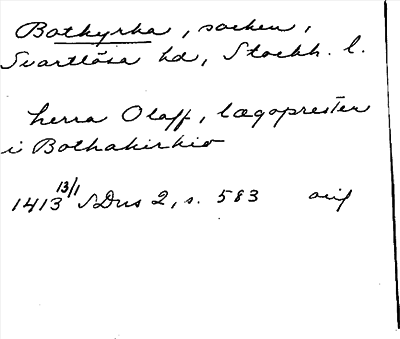 Botkyrka, socken,
Svartlösa hd, Stockh. l.
herra Olaff, lægoprester
i Bothakirkio
1413 13/1 SDns 2, s. 583 orig